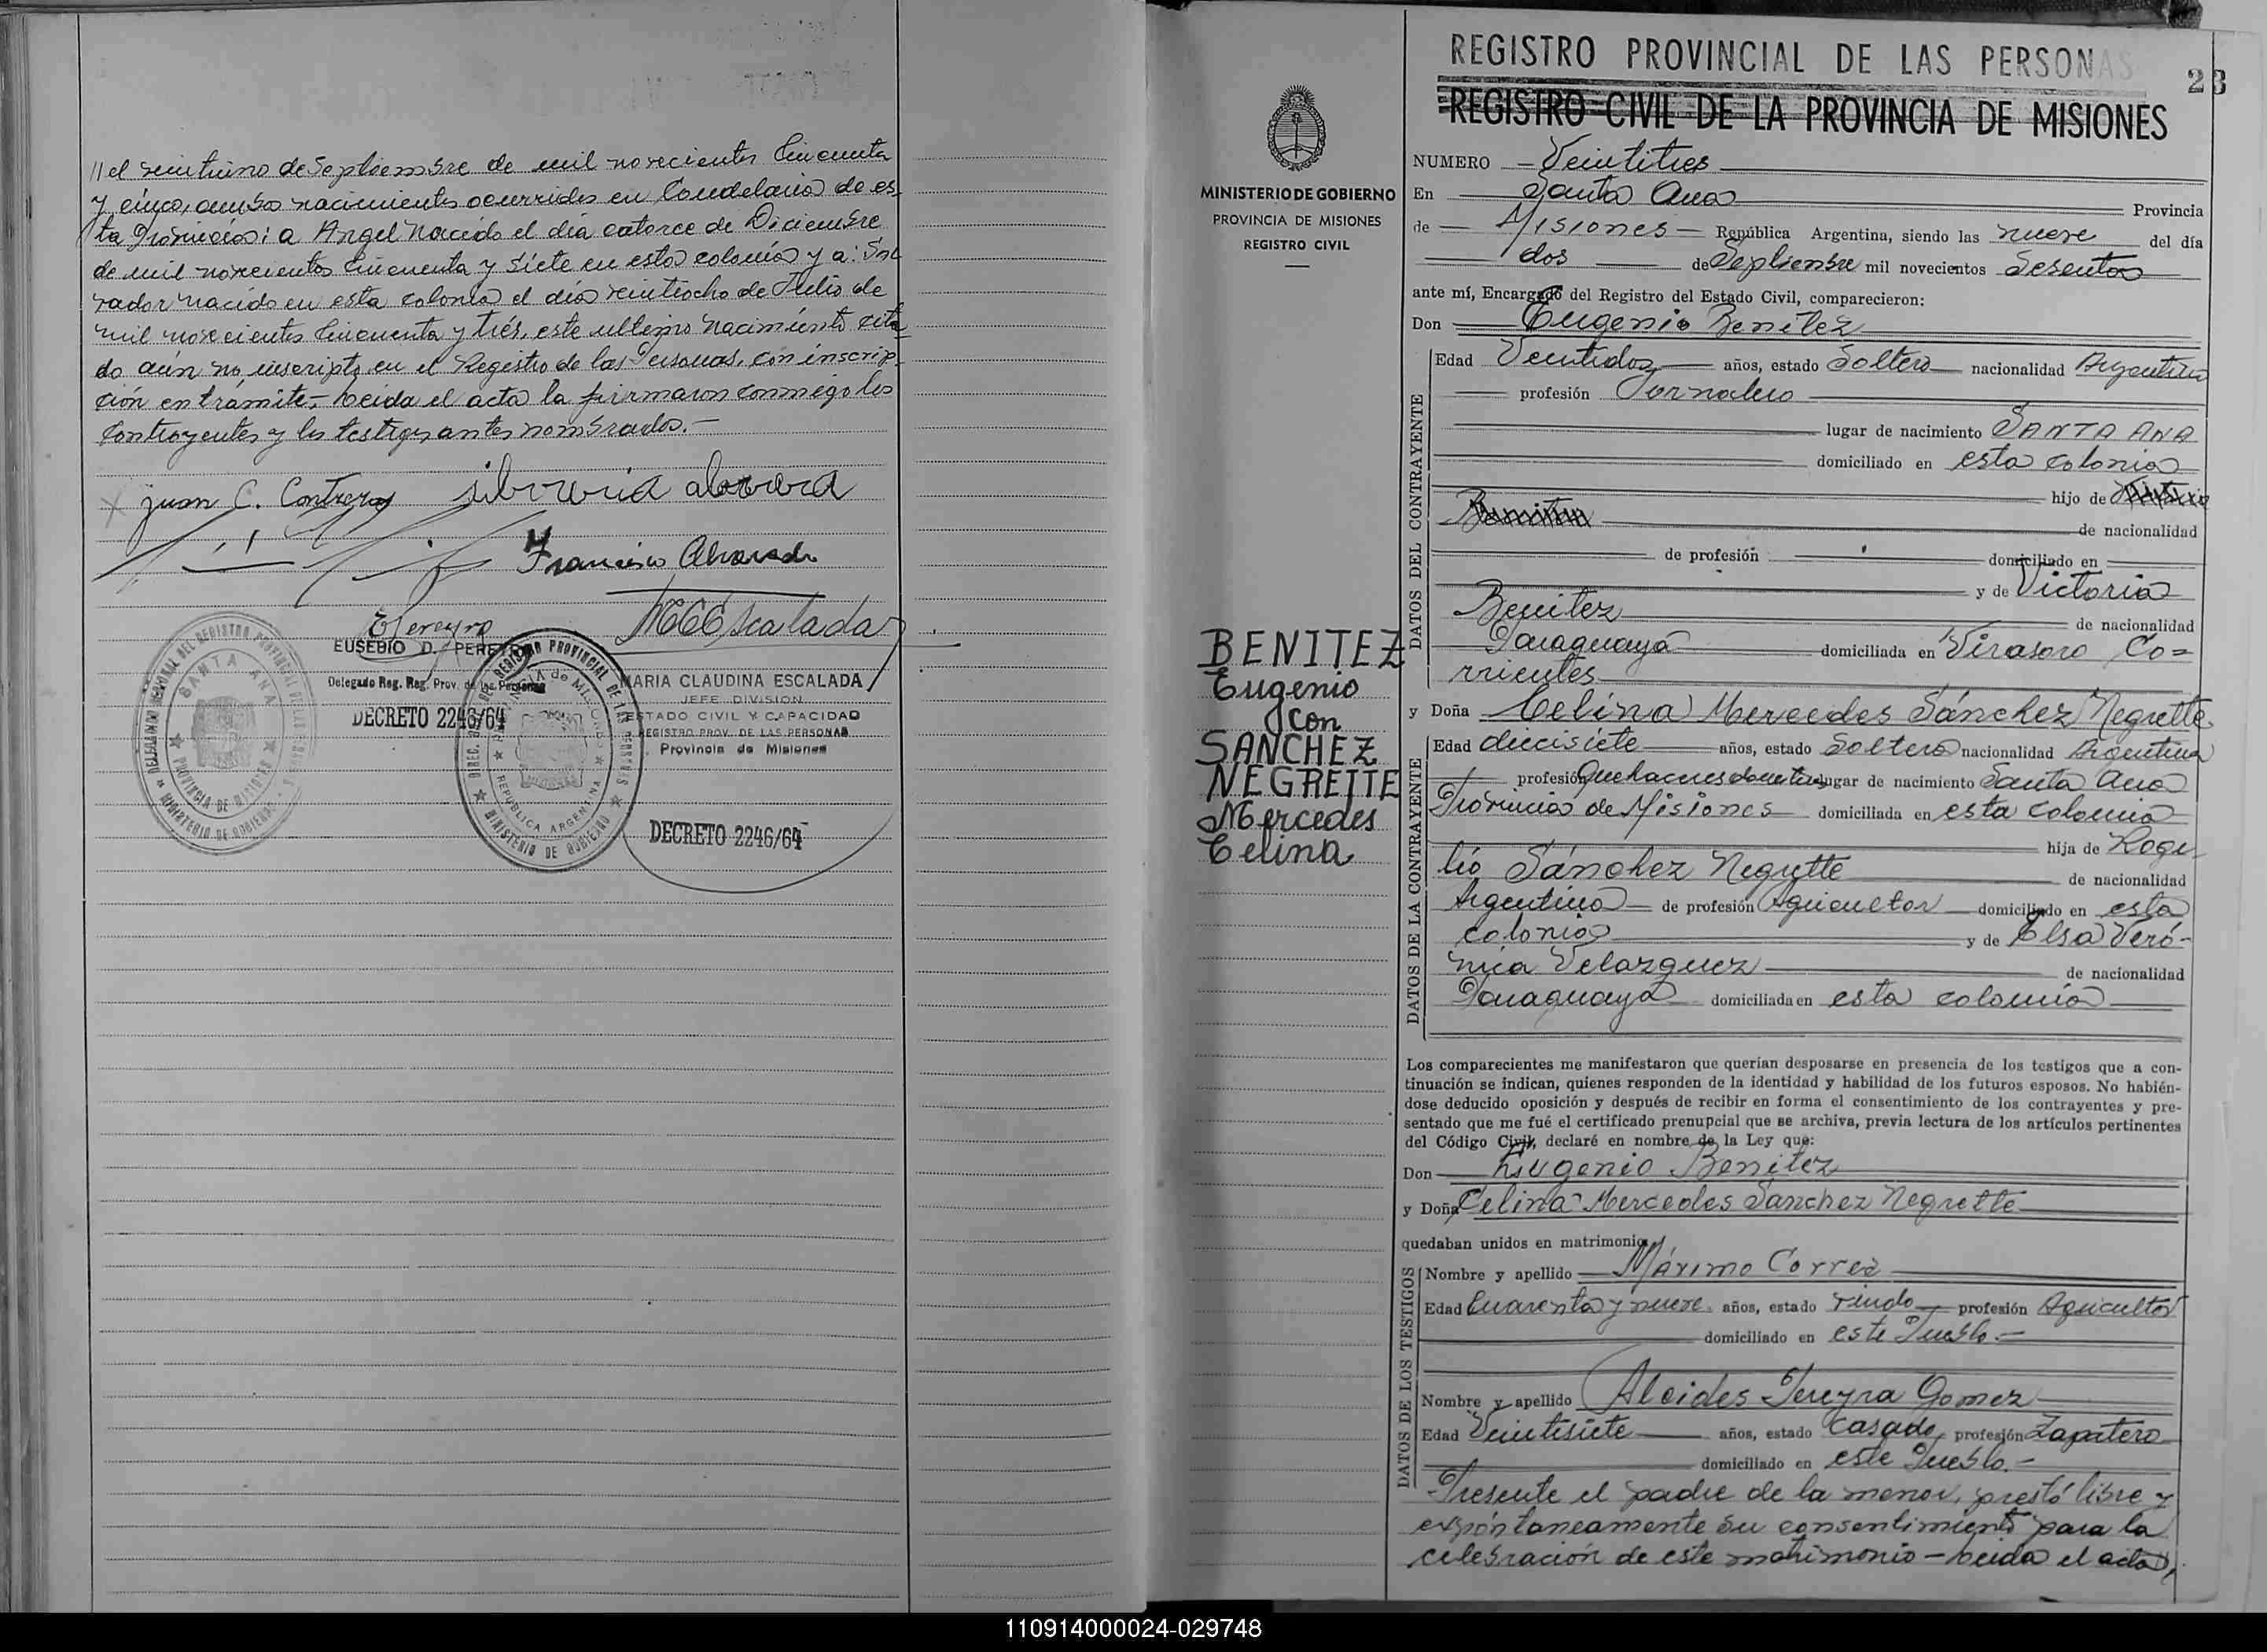 // el veintiuno de Septiembre de mil novecientos Cincuenta
y cinco, ambos nacimientos ocurridos en Candelaria de es-
ta Provincia; a Angel nacido el día catorce de Diciembre
de mil novecientos cincuenta y siete en esta colonia y a: Sal
vador nacido en esta colonia el día veintiocho de Julio de
mil novecientos Cincuenta y trés, este ultimo nacimiento cita-
do aún no inscripto en el Registro de las Personas, con inscrip-
ción en trámite.- Leida el acta la firmaron conmigo los
Contrayentes y los testigos antes nombrados.-
juan C. Contreras
Francisco Alvarado
EUSEBIO D. PEREYRA
Delegado Reg. Reg. Prov. de las Personas
DECRETO 2246/64
MCEscalada
MARIA CLAUDINA ESCALADA
JEFE DIVISION
ESTADO CIVIL Y CAPACIDAD
REGISTRO PROV. DE LAS PERSONAS
Provincia de Misiones
DECRETO 2246/64
SANTA ANA
PROVINCIA DE MISIONES
MINISTERIO DE GOBIERNO
REPUBLICA ARGENTINA
MINISTERIO DE GOBIERNO
REGISTRO PROVINCIAL DE LAS PERSONAS
23
REGISTRO CIVIL DE LA PROVINCIA DE MISIONES
MINISTERIO DE GOBIERNO
PROVINCIA DE MISIONES
REGISTRO CIVIL
BENITEZ
Eugenio
con
SANCHEZ
NEGRETTE
Mercedes
Celina
NUMERO Veintitres
En Santa Ana Provincia
de Misiones República Argentina, siendo las nueve del día
dos de Septiembre mil novecientos Sesenta
ante mí, Encargado del Registro del Estado Civil, comparecieron:
Don Eugenio Benitez
DATOS DEL CONTRAYENTE
Edad Veintidos años, estado Soltero nacionalidad Argentina
profesión Jornalero
lugar de nacimiento SANTA ANA
domiciliado en esta colonia
hijo de
de nacionalidad
de profesión domiciliado en
y de Victoria
Benitez de nacionalidad
Paraguaya domiciliada en Virasoro Co=
rrientes
y Doña Celina Mercedes Sánchez Negrette
DATOS DE LA CONTRAYENTE
Edad diecisiete años, estado Soltera nacionalidad Argentina
profesión Quehaceres domesticos lugar de nacimiento Santa Ana
Provincia de Misiones domiciliada en esta colonia
hija de Roge-
lio Sánchez Negrette de nacionalidad
Argentina de profesión Agricultor domiciliado en esta
colonia y de Elsa Veró-
nica Velazquez de nacionalidad
Paraguaya domiciliada en esta colonia
Los comparecientes me manifestaron que querían desposarse en presencia de los testigos que a con-
tinuación se indican, quienes responden de la identidad y habilidad de los futuros esposos. No habién-
dose deducido oposición y después de recibir en forma el consentimiento de los contrayentes y pre-
sentado que me fué el certificado prenupcial que se archiva, previa lectura de los artículos pertinentes
del Código Civil, declaré en nombre de la Ley que:
Don Eugenio Benitez
y Doña Celina Mercedes Sanchez Negrette
quedaban unidos en matrimonio.
DATOS DE LOS TESTIGOS
Nombre y apellido Máximo Correa
Edad Cuarenta y nueve años, estado viudo profesión Agricultor
domiciliado en este Pueblo.-
Nombre y apellido Alcides Pereyra Gomez
Edad Veintisiete años, estado Casado profesión Zapatero
domiciliado en este Pueblo.-
Presente el padre de la menor, prestó libre y
expóntaneamente su consentimiento para la
celebración de este matrimonio - Leida el acta,
110914000024-029748